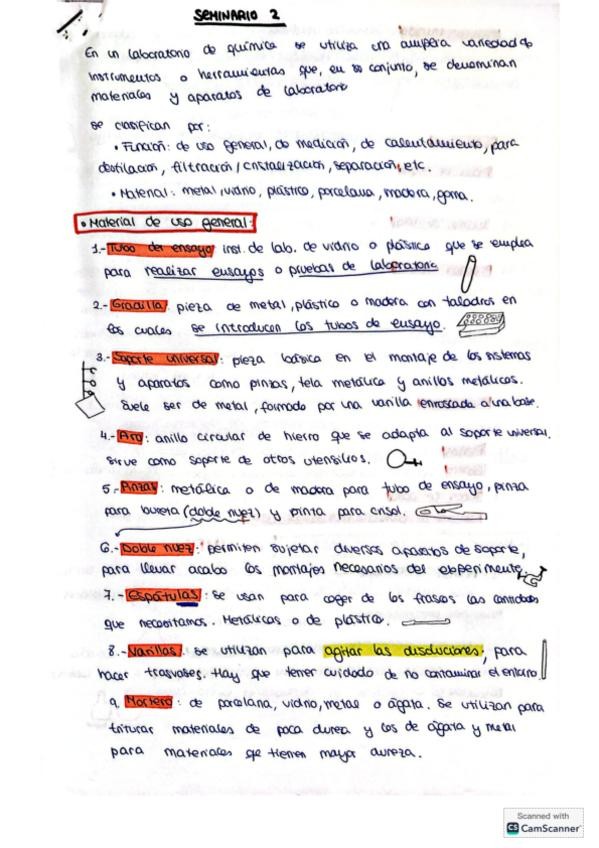 SEMINARIO 2
En un laboratorio de química se utiliza una ampera variedad de
instrumentos o herramientas que, en su conjunto, se denominan
materiales y aparatos de laboratorio
se clasifican por:
• Función: de uso general, de medición, de calentamiento, para
destilación, filtración/cristalización, separación, etc.
• Material: metal, vidrio, plástico, porcelana, madera, goma.
• Material de uso general:
1.- Tubo der ensayo inst. de lab. de vidrio o plástico que se emplea
para realizar ensayos o pruebas de laboratorio
2.- Gradilla: pieza de metal, plástico o madera con taladros en
los cuales se introducen los tubos de ensayo.
3.- Soporte universal: pieza básica en el montaje de los sistemas
y aparatos como pinzas, tela metálica y anillos metálicos.
Suele ser de metal, formado por una varilla enroscada a una base.
4.- Aro: anillo circular de hierro que se adapta al soporte universal.
Sirve como soporte de otros utensilios.
5.- Pinzas: metálica o de madera para tubo de ensayo, pinza
para bureta (doble nuez) y pinza para crisol.
6.- Doble nuez: permiten sujetar diversos aparatos de soporte,
para llevar acabo los montajes necesarios del experimento.
7.- Espátulas: se usan para coger de los frascos las cantidades
que necesitamos. Metálicas o de plástico.
8.- Varillas: se utilizan para agitar las disoluciones, para
hacer trasvases. Hay que tener cuidado de no contaminar el entorno.
9. Mortero: de porcelana, vidrio, metal o ágata. Se utilizan para
triturar materiales de poca dureza y los de ágata y metal
para materiales que tienen mayor dureza.
Scanned with
CS CamScanner